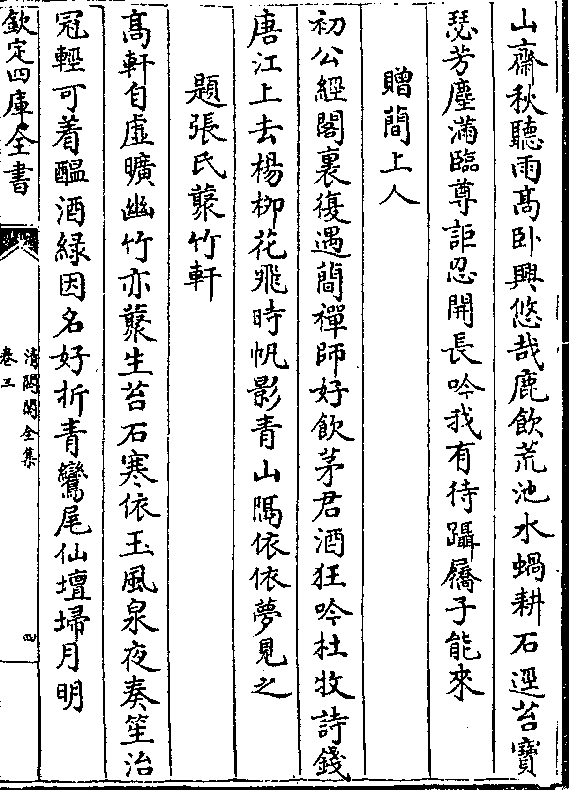 山齋秋聽雨髙卧興悠哉鹿飲荒池水蝸耕石逕苔寶
瑟芳塵滿臨尊詎忍開長吟我有待躡屩子能來
贈蕳上人
初公經閣裏復遇蕳禪師好飲茅君酒狂吟杜牧詩錢
唐江上去楊栁花飛時帆影青山隔依依夢見之
題張氏藂竹軒
髙軒自虛曠幽竹亦藂生苔石寒依玉風泉夜奏笙治
冠輕可着醞酒緑因名好折青鸞尾仙壇埽月明
欽定四庫全書
清閟閣全集
卷三
四